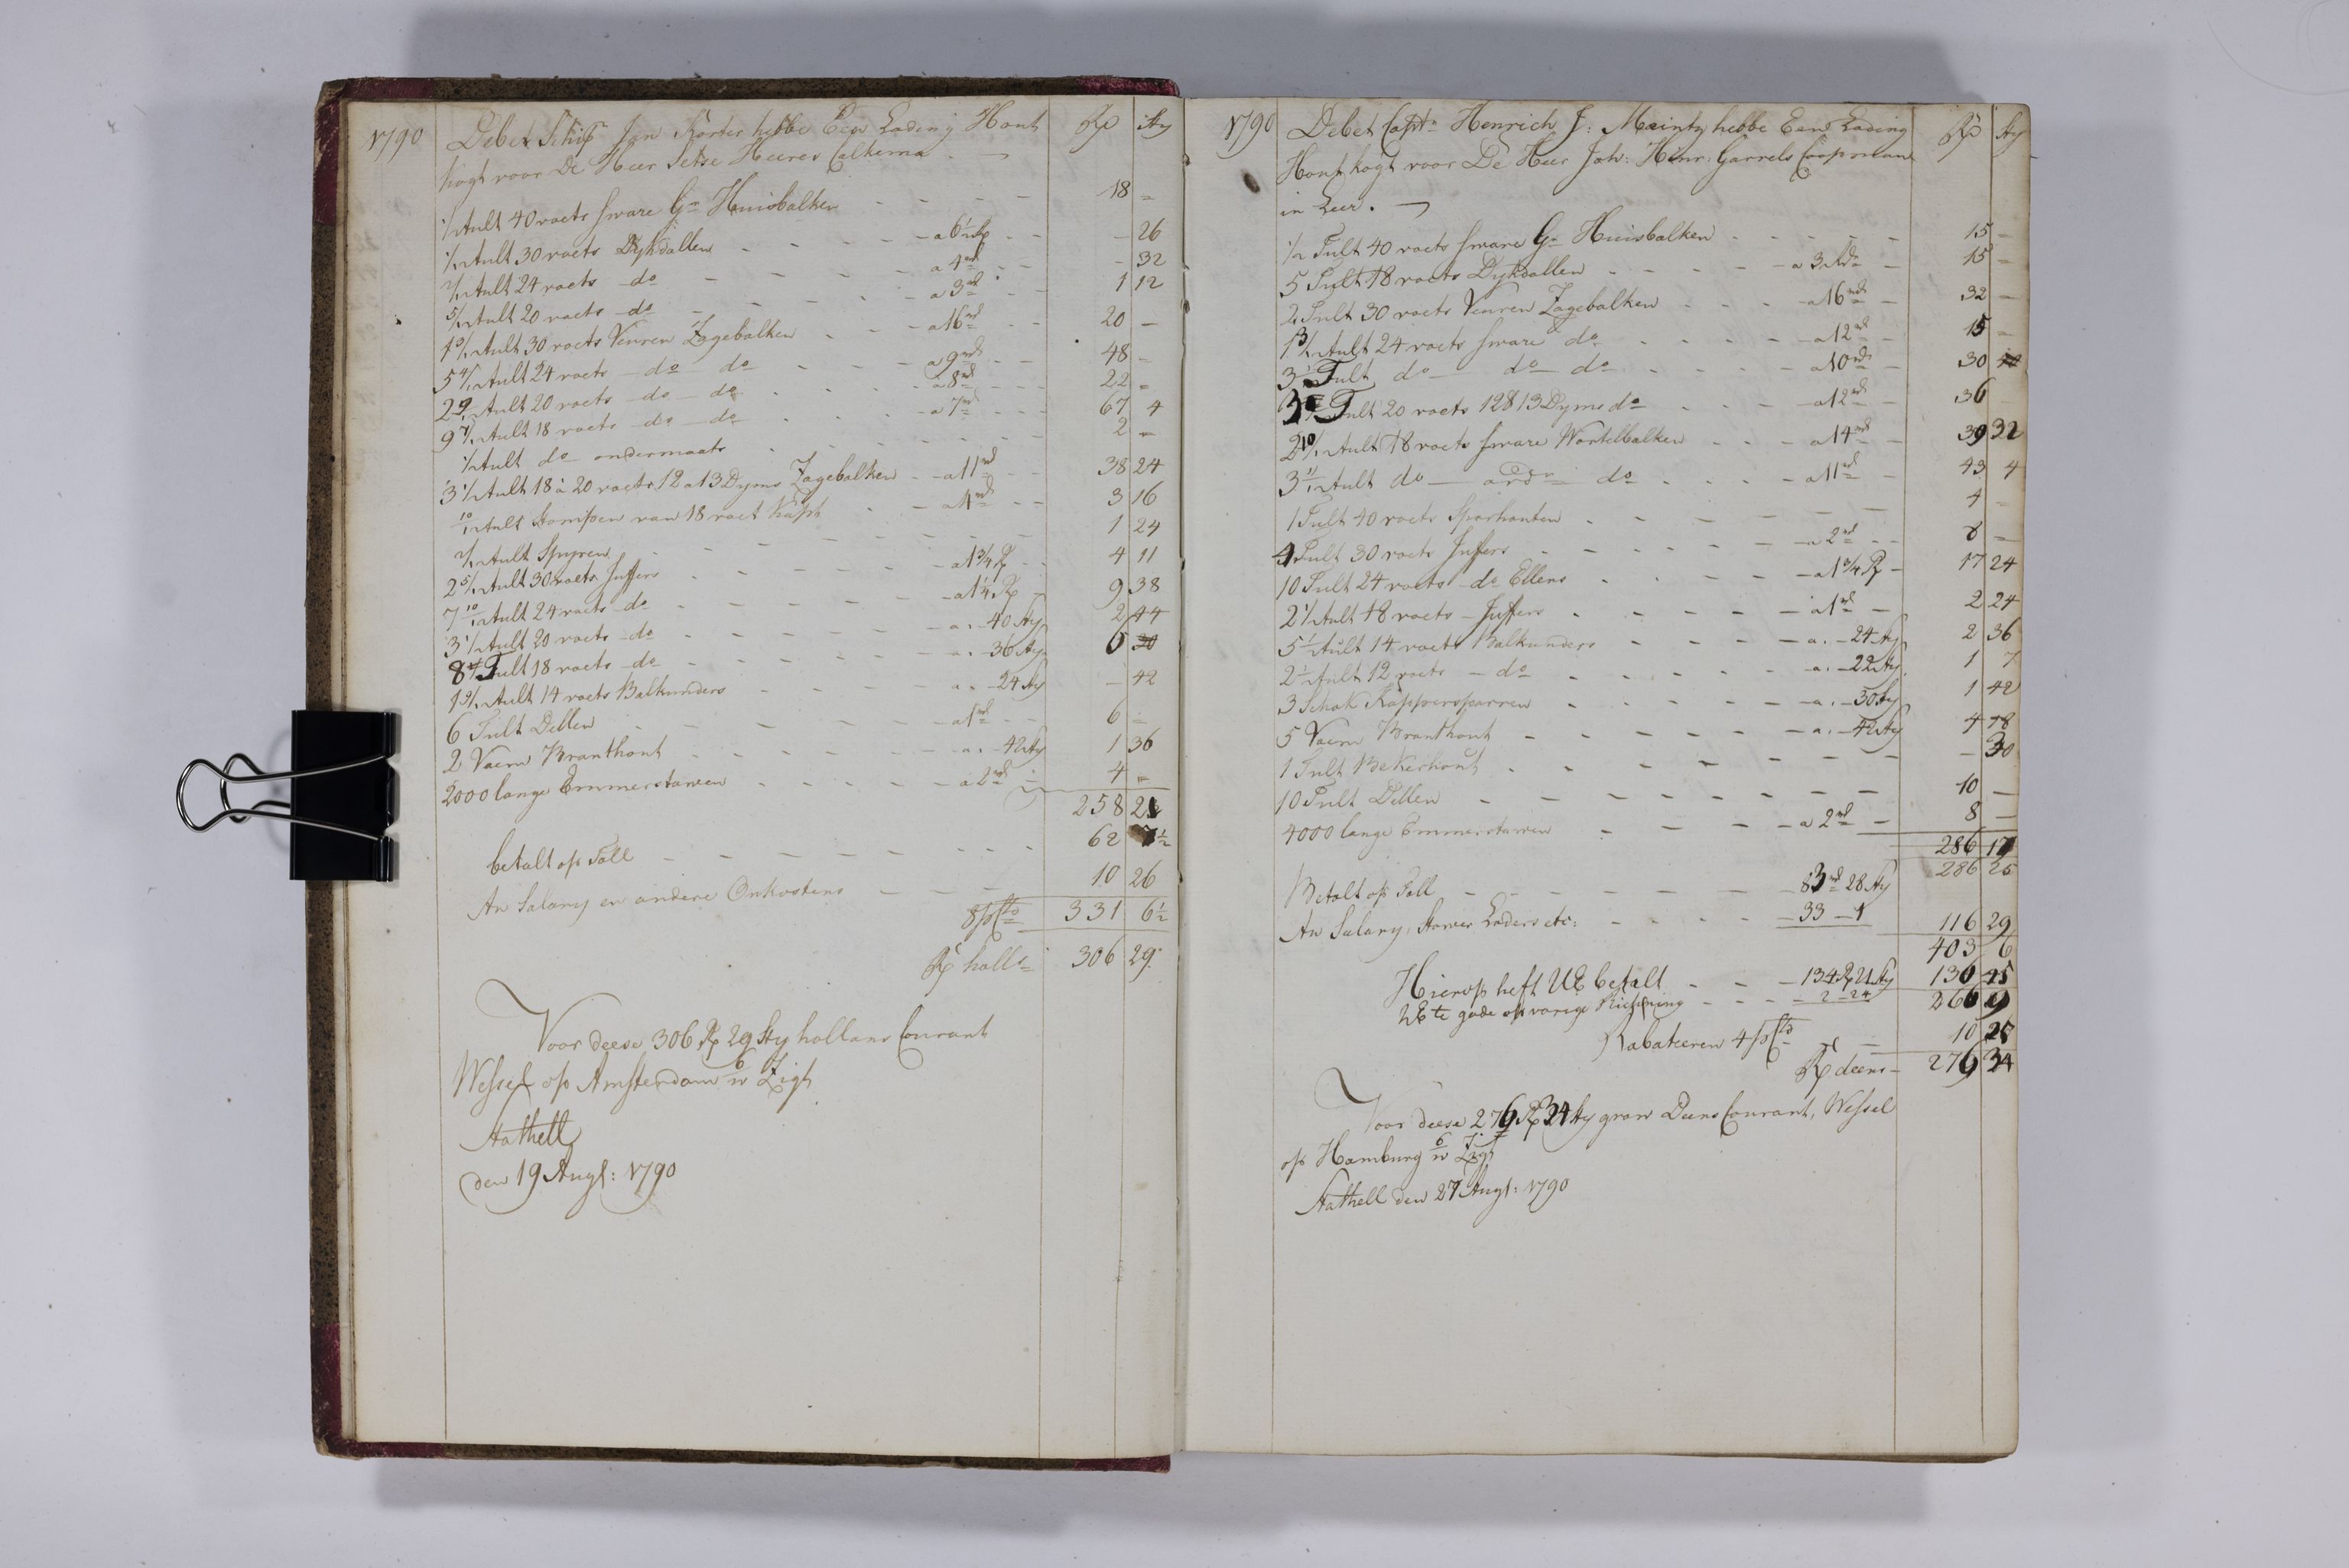 1790 Debet Schip Jan Korter hebbe Een Lading Hout Rd Sty
kogt voor De Heer Setse Heeres Calkema
Tult 40 voets sware Gr Huisbalken 18 -
Tult 30 voets Dykdallen a 6½ Rd - 26
Tult 24 voets do a 4 rd - 32
Tult 20 voets do a 3 rd 1 12
Tult 30 voets Veuren Zagebalken a 16 rd 20 -
Tult 24 voets do do a 9 rd 48 -
Tult 20 voets do do a 8 rd 22 -
Tult 18 voets do do a 7 rd 67 4
Tult do ondermaats 2 -
Tult 18 a 20 voets 12 a 13 Dyms Zagebalken a 11 rd 38 24
Tult Stompen van 18 voet a 4 rd 3 16
Tult Spyren 1 24
Tult 30 voets Juffers a 1¾ Rd 4 11
Tult 24 voets do a 1¼ Rd 9 38
Tult 20 voets do a - 40 Sty 2 44
Tult 18 voets do a - 36 Sty 6
Tult 14 voets Balkunders a - 24 Sty - 42
6 Tult Dellen a 1 rd 6 -
2 Vaem Branthout a - 42 Sty 1 36
2000 lange Emmerstaven a 2 rd 4 -
258
betalt op Toll 62
An Salary en andere Onkostens 10 26
8 p Cto 331 6½
Rd holls 306 29
Voor deese 306 Rd 29 Sty hollans Courant
Wessel op Amsterdam 6 w Zigt
Stathell
den 19 Augt: 1790
1790 Debet Captn Henrich J: Meinty hebbe Een Lading Rd Sty
Hout kogt voor De Heer Joh: Hinr: Garrels Coopman
in Leer.
½ Tult 40 voets sware Gr Huisbalken 15 -
5 Tult 18 voets Dykdallen a 3 Rd 15 -
2 Tult 30 voets Veuren Zagebalken a 16 rd 32 -
Tult 24 voets sware do a 12 rd 15 -
Tult do do do a 10 rd 30
Tult 20 voets 12 & 13 Dyms do a 12 rd 36
Tult 18 voets sware Wortelbalken a 14 rd 39 32
Tult do ordn do a 11 rd 43 4
1 Tult 40 voets Sparhouten 4 -
4 Tult 30 voets Juffers a 2 rd 8 -
10 Tult 24 voets do Ellens a 1¾ Rd 17 24
Tult 18 voets Juffers a 1 rd 2 24
Tult 14 voets Balkunders a - 24 Sty 2 36
Tult 12 voets do a - 22 Sty 1 7
3 Schok Kappersparren a - 30 Sty 1 42
5 Vaem Branthout a - 42 Sty 4 18
1 Tult Bekerhout - 30
10 Tult Dellen 10 -
4000 lange Emmerstaven a 2 rd 8 -
286 17
286 25
Betalt op Toll 83 rd 28 Sty
An Salary, Stover Laders etc: 33 - 1 116 29
403 6
Hierop heft UE betalt 134 Rd 21 Sty
UE te gode op vorige Rechning 2 - 24
Rabateeren 4 p Cto 10
Rd deens 276 34
Voor deese 276 Rd 34 Sty grow Deens Courant, Wessel
op Hamburg 6 w Zigt
Stathell den 27 Augt: 1790